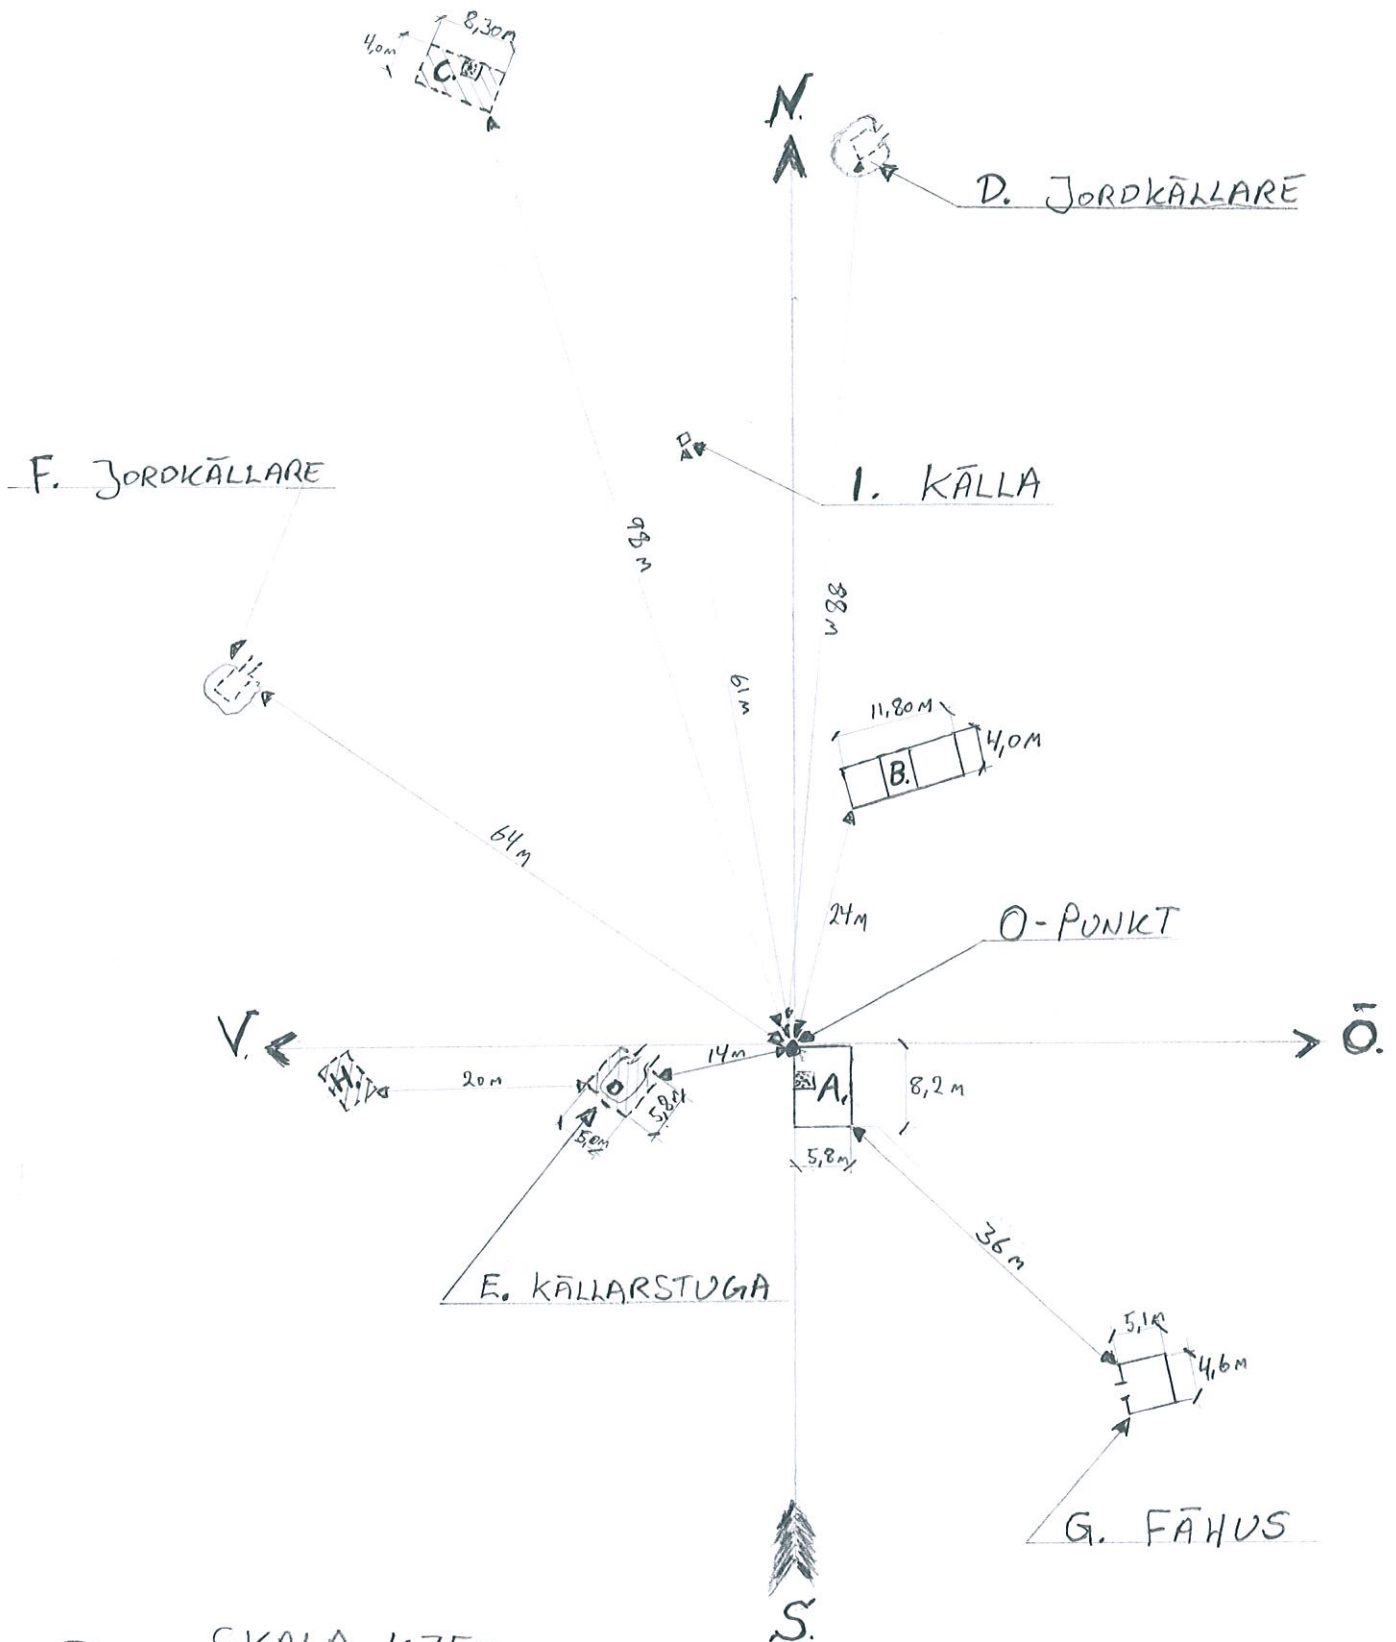 8,30M
4,0M
C.
N.
D. JORDKÄLLARE
F. JORDKÄLLARE
1. KÄLLA
98 M
88 M
61 M
11,80M
4,0M
B.
64 M
24 M
O-PUNKT
V.
Ö.
H.
20M
14M
A.
8,2 M
5,8M
5,0M
5,8M
36 M
E. KÄLLARSTUGA
5,1M
4,6M
G. FÄHUS
S.